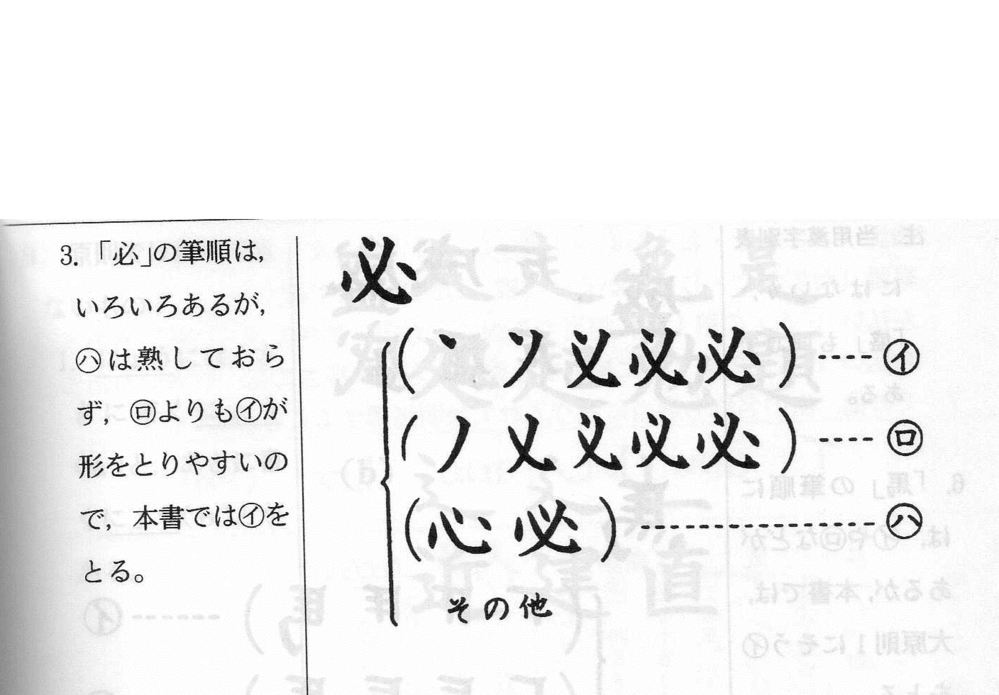 3.「必」の筆順は,
いろいろあるが,
㋩は熟しておら
ず, ㋺よりも㋑が
形をとりやすいの
で, 本書では㋑を
とる。
必
(丶 ソ 义 必 必)----㋑
(ノ 乂 义 必 必)----㋺
(心 必)----------------㋩
その他